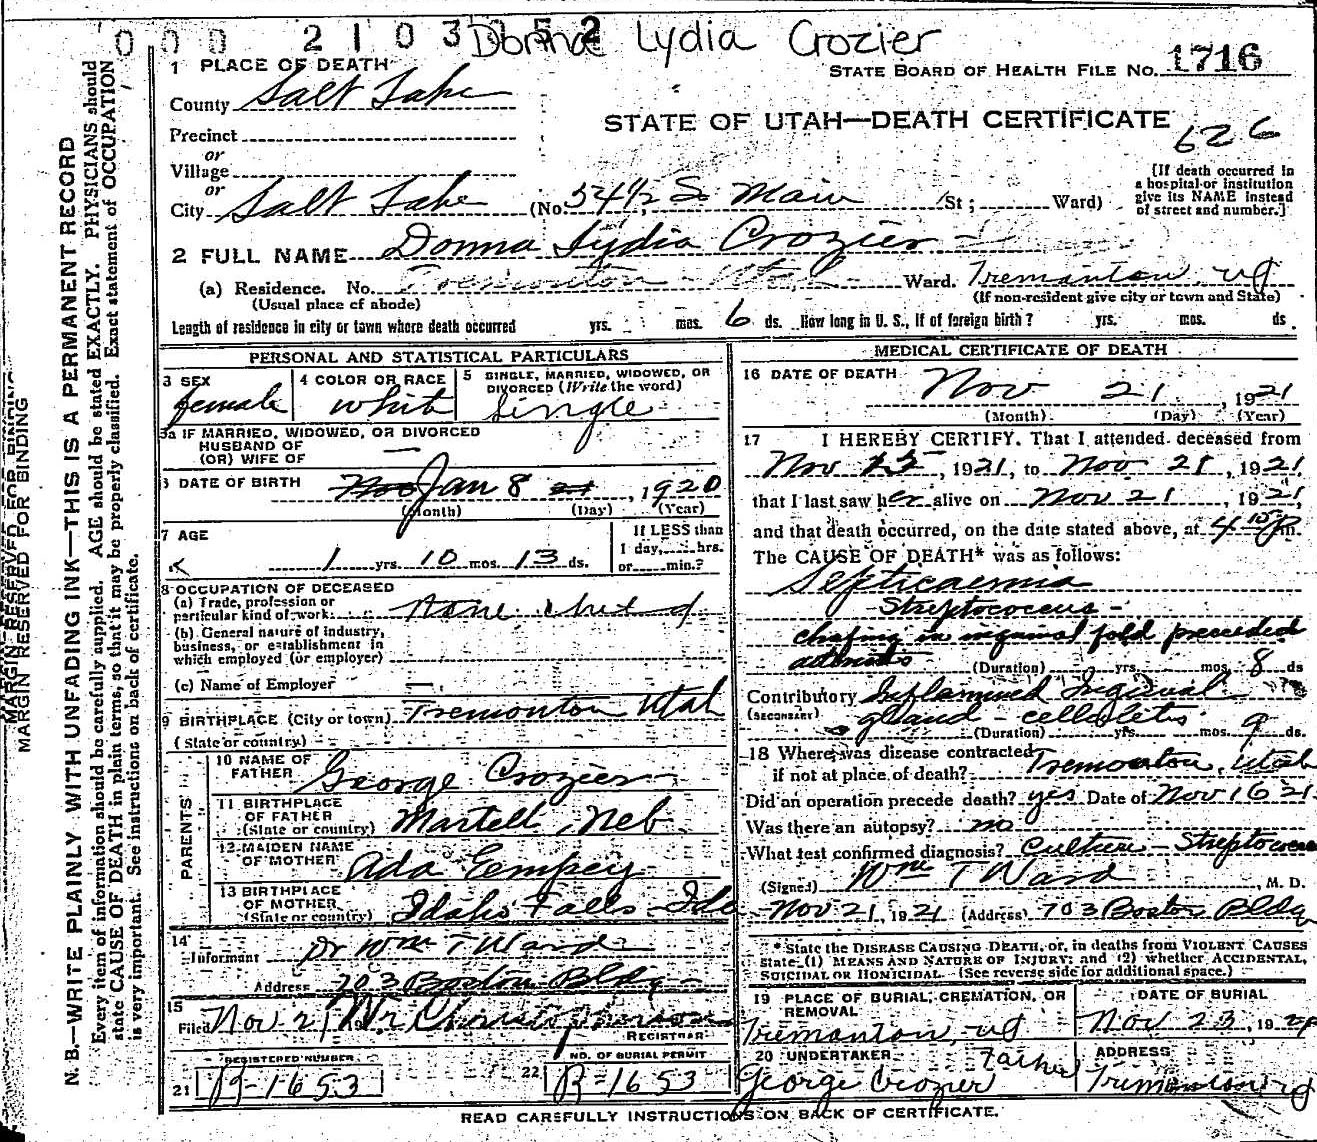 000 2103052 Donna Lydia Crozier
1 PLACE OF DEATH
STATE BOARD OF HEALTH FILE No. 1716
County Salt Lake
STATE OF UTAH—DEATH CERTIFICATE
626
Precinct
or
Village
or
City Salt Lake (No. 54½ So Main St; Ward)
[If death occurred in
a hospital or institution
give its NAME instead
of street and number.]
2 FULL NAME Donna Lydia Crozier
(a) Residence. No. Tremonton Utah Ward. Tremanton, ut
(Usual place of abode) (If non-resident give city or town and State)
Length of residence in city or town where death occurred yrs. mos. 6 ds. How long in U. S., if of foreign birth? yrs. mos. ds.
PERSONAL AND STATISTICAL PARTICULARS
3 SEX female
4 COLOR OR RACE white
5 SINGLE, MARRIED, WIDOWED, OR
DIVORCED (Write the word)
Single
3a IF MARRIED, WIDOWED, OR DIVORCED
HUSBAND OF
(OR) WIFE OF —
6 DATE OF BIRTH Nov Jan 8 21, 1920
(Month) (Day) (Year)
7 AGE
1 yrs. 10 mos. 13 ds.
If LESS than
1 day, hrs.
or min.?
8 OCCUPATION OF DECEASED
(a) Trade, profession or
particular kind of work None child
(b) General nature of industry,
business, or establishment in
which employed (or employer)
(c) Name of Employer —
9 BIRTHPLACE (City or town) Tremonton Utah
(State or country)
PARENTS
10 NAME OF
FATHER George Crozier
11 BIRTHPLACE
OF FATHER
(State or country) Martell, Neb.
12 MAIDEN NAME
OF MOTHER Ada Eempey
13 BIRTHPLACE
OF MOTHER
(State or country) Idaho Falls Ida
14
Informant Dr Wm T Ward
Address 703 Boston Bldg
15
Filed Nov 21, 19
REGISTRAR
REGISTERED NUMBER
21 B-1653
NO. OF BURIAL PERMIT
22 B-1653
MEDICAL CERTIFICATE OF DEATH
16 DATE OF DEATH
Nov 21, 1921
(Month) (Day) (Year)
17 I HEREBY CERTIFY. That I attended deceased from
Nov 15, 1921, to Nov 21, 1921,
that I last saw her alive on Nov 21, 1921,
and that death occurred, on the date stated above, at 4 15 P m.
The CAUSE OF DEATH* was as follows:
Septicaemia
Streptococcus -
chafing in inguinal fold preceded
adenitis (Duration) yrs. mos. 8 ds
Contributory Inflammed Inguinal
(SECONDARY) gland - cellulitis
(Duration) yrs. mos. 9 ds.
18 Where was disease contracted
if not at place of death? Tremonton, Utah
Did an operation precede death? yes Date of Nov 16 21
Was there an autopsy? no
What test confirmed diagnosis? Culture - Streptococcus
(Signed) Wm T Ward, M. D.
Nov 21, 1921 (Address) 703 Boston Bldg
* State the DISEASE CAUSING DEATH, or, in deaths from VIOLENT CAUSES
State (1) MEANS AND NATURE OF INJURY; and (2) whether ACCIDENTAL,
SUICIDAL OR HOMICIDAL. (See reverse side for additional space.)
19 PLACE OF BURIAL, CREMATION, OR
REMOVAL
Tremanton, ut
DATE OF BURIAL
Nov 23, 19
20 UNDERTAKER Father
George Crozier
ADDRESS
Tremonton ut
READ CAREFULLY INSTRUCTIONS ON BACK OF CERTIFICATE.
MARGIN RESERVED FOR BINDING
MARGIN RESERVED FOR BINDING
N. B.—WRITE PLAINLY WITH UNFADING INK—THIS IS A PERMANENT RECORD
Every item of information should be carefully supplied. AGE should be stated EXACTLY. PHYSICIANS should
state CAUSE OF DEATH in plain terms, so that it may be properly classified. Exact statement of OCCUPATION
is very important. See instructions on back of certificate.